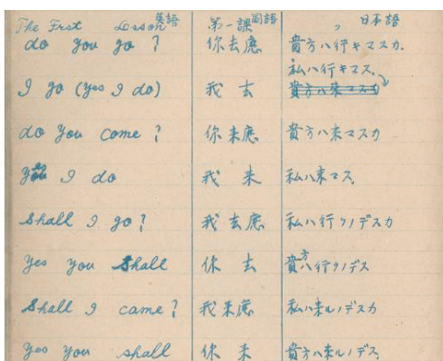 The Frst Lesson 英語 第一課 国語 〃 日本語
do you go ? 你去麼 貴方ハ行キマスカ.
私ハ行キマス、
I go (yes I do) 我 去 貴方ハ来マスカ
do you come ? 你来麼 貴方ハ来マスカ
yes I do 我 来 私ハ来マス
Shall I go ? 我去麼 私ハ行クノデスカ
Yes you Shall 你 去 貴方ハ行クノデス
Shall I came ? 我来麼 私ハ来ルノデスカ
Yes you shall 你 来 貴方ハ来ルノデス